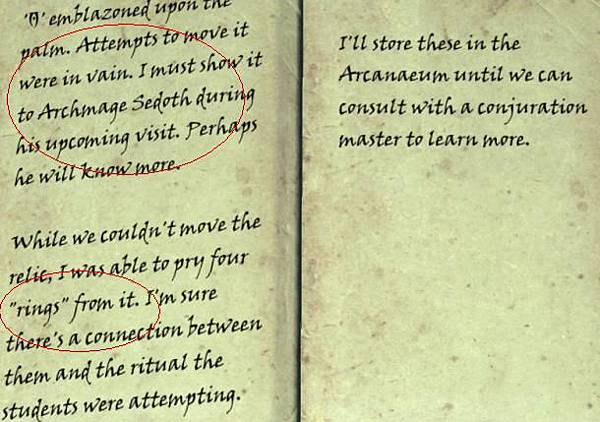 'O' emblazoned upon the
palm. Attempts to move it
were in vain. I must show it
to Archmage Sedoth during
his upcoming visit. Perhaps
he will know more.
While we couldn't move the
relic, I was able to pry four
"rings" from it. I'm sure
there's a connection between
them and the ritual the
students were attempting.
I'll store these in the
Arcanaeum until we can
consult with a conjuration
master to learn more.